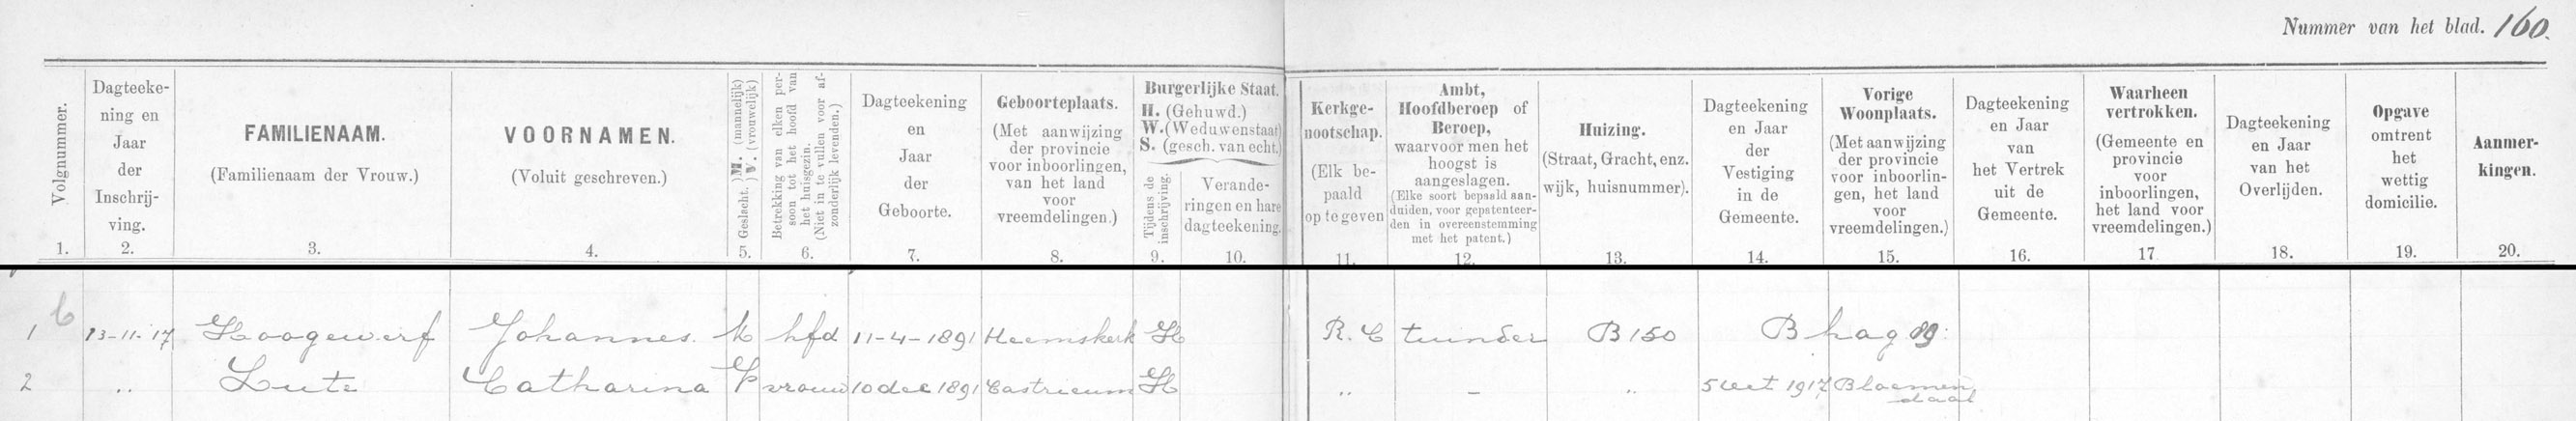 Nummer van het blad. 160.
Volgnummer.
1.
Dagteeke-
ning en
Jaar
der
Inschrij-
ving.
2.
FAMILIENAAM.
(Familienaam der Vrouw.)
3.
VOORNAMEN.
(Voluit geschreven.)
4.
Geslacht. M. (mannelijk)
V. (vrouwelijk)
5.
Betrekking van elken per-
soon tot het hoofd van
het huisgezin.
(Niet in te vullen voor af-
zonderlijk levenden.)
6.
Dagteekening
en
Jaar
der
Geboorte.
7.
Geboorteplaats.
(Met aanwijzing
der provincie
voor inboorlingen,
van het land
voor
vreemdelingen.)
8.
Burgerlijke Staat.
H. (Gehuwd.)
W. (Weduwenstaat)
S. (gesch. van echt.)
Tijdens de
inschrijving.
9.
Verande-
ringen en hare
dagteekening.
10.
Kerkge-
nootschap.
(Elk be-
paald
op te geven
11.
Ambt,
Hoofdberoep of
Beroep,
waarvoor men het
hoogst is
aangeslagen.
(Elke soort bepaald aan-
duiden, voor gepatenteer-
den in overeenstemming
met het patent.)
12.
Huizing.
(Straat, Gracht, enz.
wijk, huisnummer).
13.
Dagteekening
en Jaar
der
Vestiging
in de
Gemeente.
14.
Vorige
Woonplaats.
(Met aanwijzing
der provincie
voor inboorlin-
gen, het land
voor
vreemdelingen.)
15.
Dagteekening
en Jaar
van
het Vertrek
uit de
Gemeente.
16.
Waarheen
vertrokken.
(Gemeente en
provincie
voor
inboorlingen,
het land voor
vreemdelingen.)
17
Dagteekening
en Jaar
van het
Overlijden.
18.
Opgave
omtrent
het
wettig
domicilie.
19.
Aanmer-
kingen.
20.
1 13-11-17 Hoogewerf Johannes. M hfd 11-4-1891 Heemskerk H R. C tuinder B 150 B hag
2 " Lute Catharina V vrouw 10 dec 1891 Castricum H " - " 5 Oct 1917 Bloemen
daal